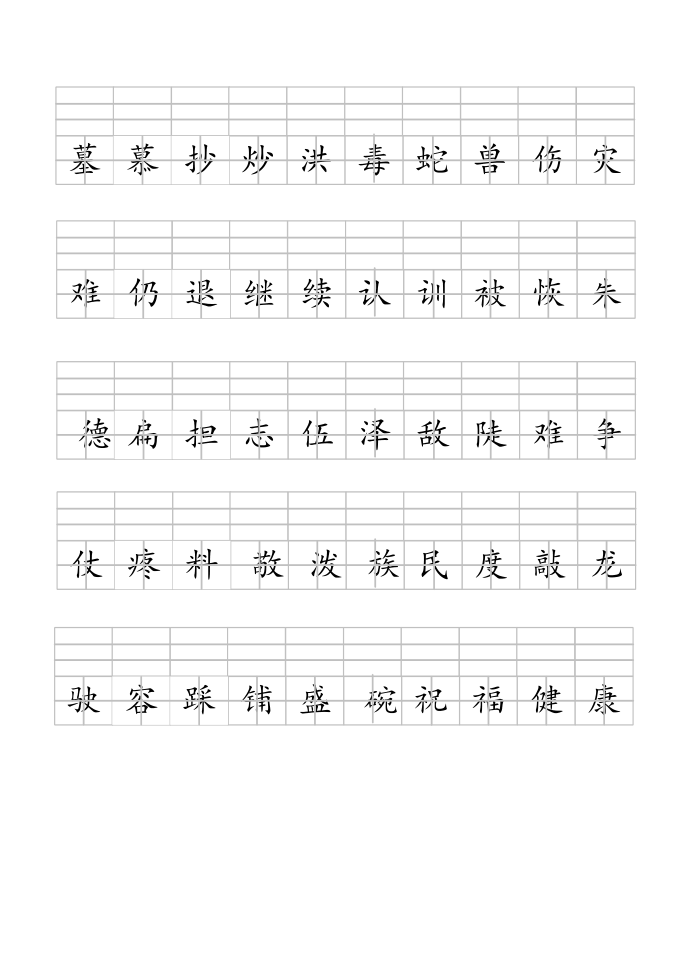 墓慕抄炒洪毒蛇兽伤灾
难仍退继续认训被恢朱
德扁担志伍泽敌陡难争
仗疼料敬泼族民度敲龙
驶容踩铺盛碗祝福健康